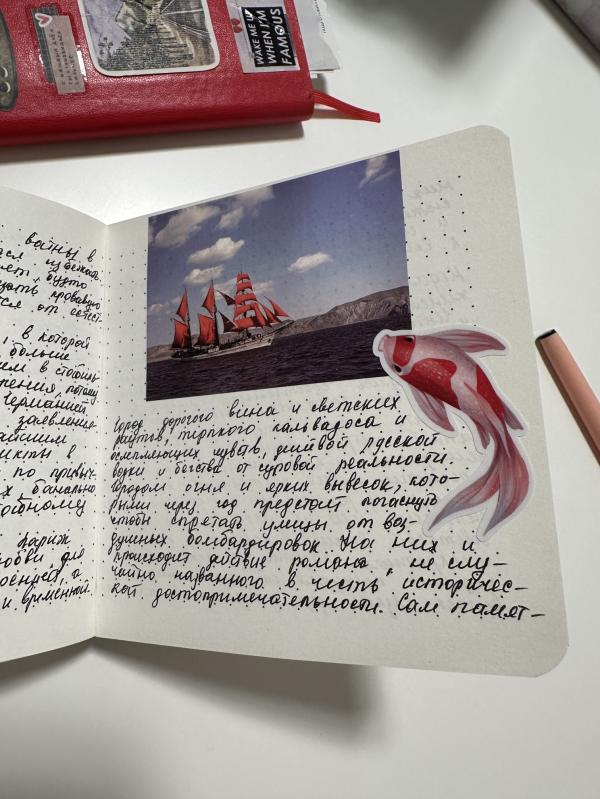 WAKE ME UP
WHEN I'M
FAMOUS
войны в
избежать
будто
кровавую
от
, в которой
больше
в
потому
Германией.
заявление
в
по привыч-
банально
Париж
где
а
и временной.
Город дорогого вина и светских
раутов, терпкого кальвадоса и
чувств, дешёвой русской
водки и бегства от суровой реальности.
Городом огня и ярких вывесок, кото-
рыми через год предстоит погаснуть
чтобы спрятать улицы от воз-
душных бомбардировок. На них и
происходит действие романа, не слу-
чайно названного в честь историчес-
кой достопримечательности. Сам памят-